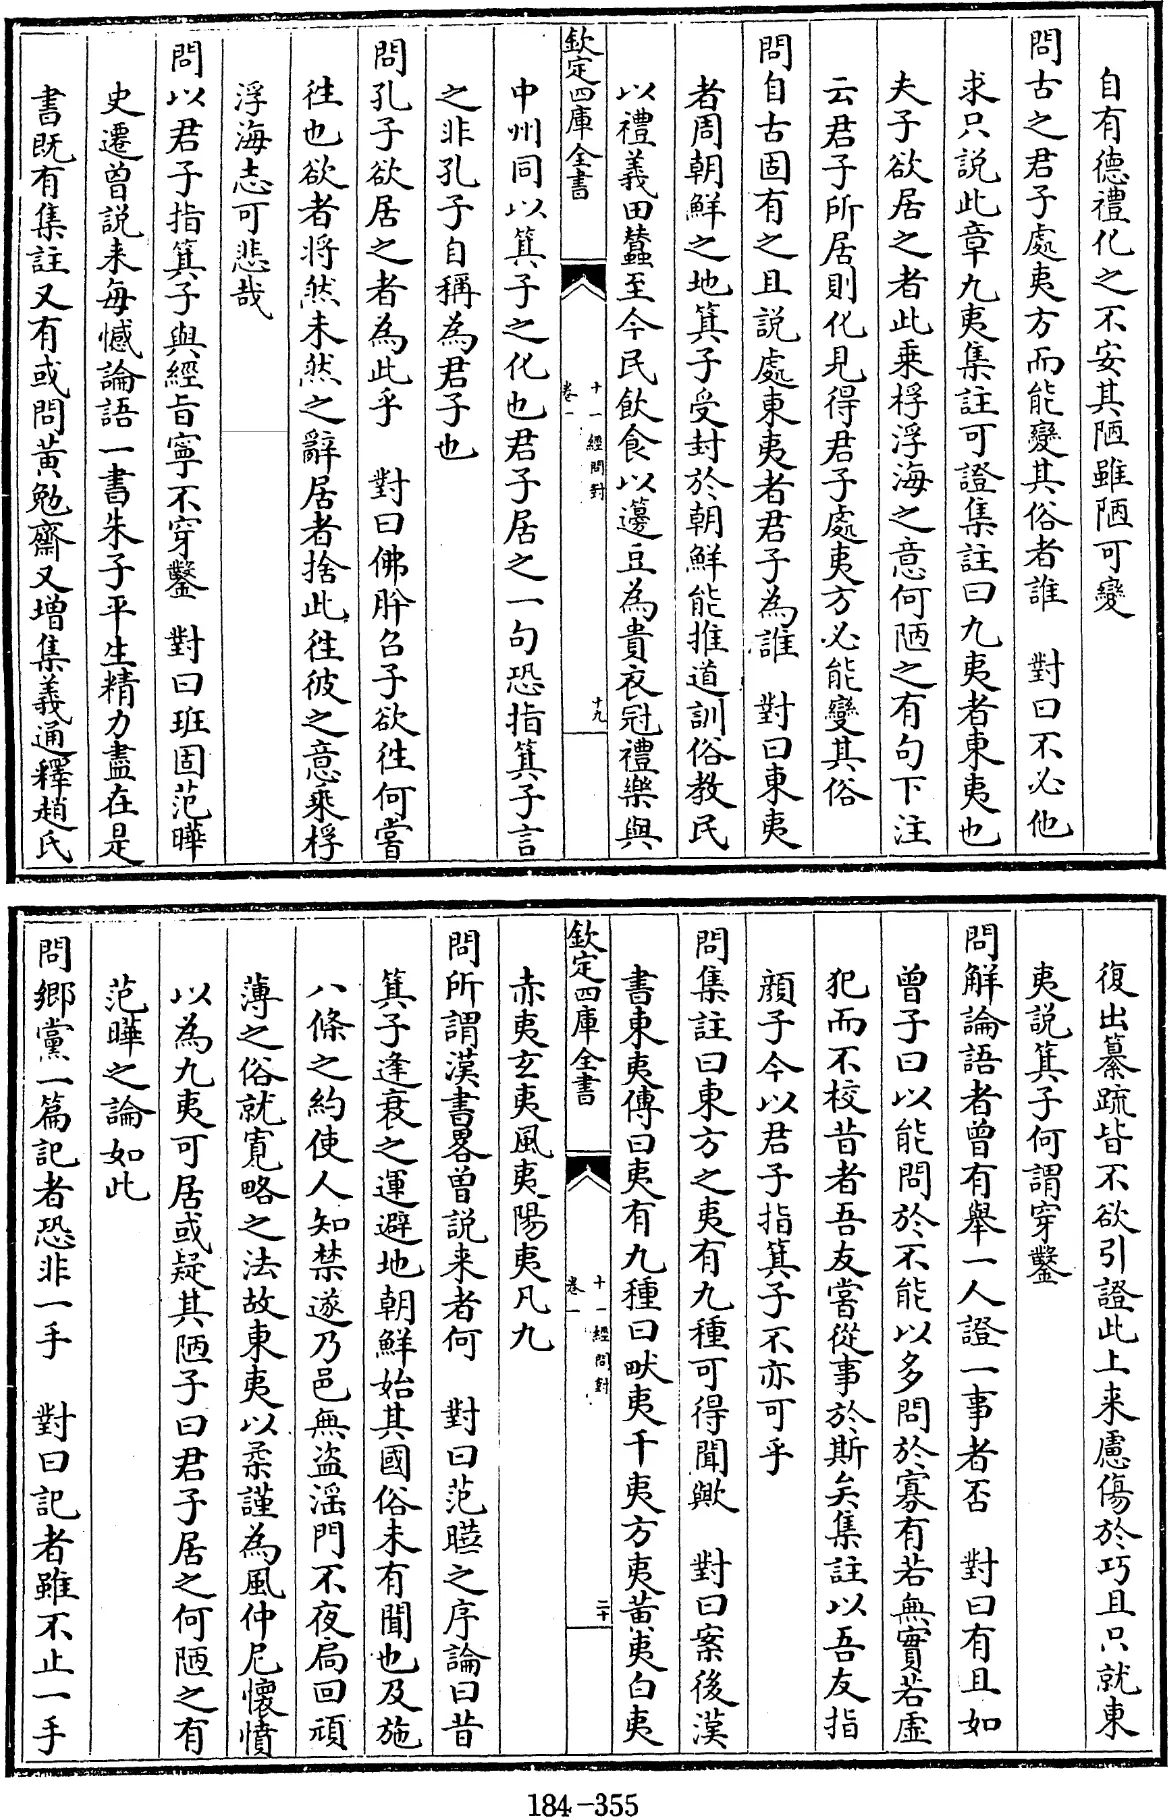 自有德禮化之不安其陋雖陋可變
問古之君子處夷方而能變其俗者誰　對曰不必他
求只説此章九夷集註可證集註曰九夷者東夷也
夫子欲居之者此乗桴浮海之意何陋之有句下注
云君子所居則化見得君子處夷方必能變其俗
問自古固有之且説處東夷者君子為誰　對曰東夷
者周朝鮮之地箕子受封於朝鮮能推道訓俗教民
以禮義田蠶至今民飲食以籩豆為貴衣冠禮樂與
欽定四庫全書　十一經問對　卷一　十九
中州同以箕子之化也君子居之一句恐指箕子言
之非孔子自稱為君子也
問孔子欲居之者為此乎　對曰佛肸召子欲徃何嘗
徃也欲者将然未然之辭居者捨此徃彼之意乘桴
浮海志可悲哉
問以君子指箕子與經旨寧不穿鑿　對曰班固范曄
史遷曽説来每憾論語一書朱子平生精力盡在是
書既有集註又有或問黄勉齋又增集義通釋趙氏
復出纂疏皆不欲引證此上来慮傷於巧且只就東
夷説箕子何謂穿鑿
問解論語者曾有舉一人證一事者否　對曰有且如
曾子曰以能問於不能以多問於寡有若無實若虛
犯而不校昔者吾友嘗從事於斯矣集註以吾友指
顔子今以君子指箕子不亦可乎
問集註曰東方之夷有九種可得聞歟　對曰案後漢
書東夷傳曰夷有九種曰畎夷干夷方夷黄夷白夷
欽定四庫全書　十一經問對　卷一　二十
赤夷玄夷風夷陽夷凡九
問所謂漢書畧曽説来者何　對曰范曄之序論曰昔
箕子逢衰之運避地朝鮮始其國俗未有聞也及施
八條之約使人知禁遂乃邑無盗淫門不夜扃回頑
薄之俗就寛略之法故東夷以柔謹為風仲尼懷憤
以為九夷可居或疑其陋子曰君子居之何陋之有
范曄之論如此
問鄉黨一篇記者恐非一手　對曰記者雖不止一手
184-355